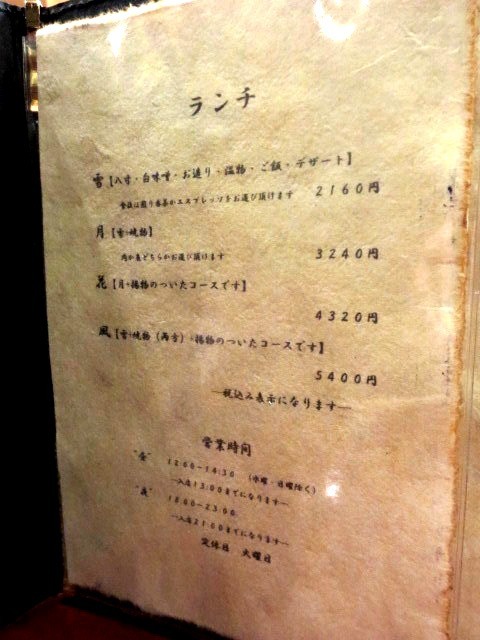 ランチ
雪【八寸・白味噌・お造り・温物・ご飯・デザート】
食後は煎り番茶かエスプレッソをお選び頂けます 2160円
月【雪+焼物】
肉か魚どちらかお選び頂けます 3240円
花【月+揚物のついたコースです】
4320円
風【雪+焼物(両方)+揚物のついたコースです】
5400円
―税込み表示になります―
営業時間
"昼" 12:00-14:30 (水曜・日曜除く)
―入店13:00までになります―
"夜" 18:00-23:00
―入店21:00までになります―
定休日 火曜日